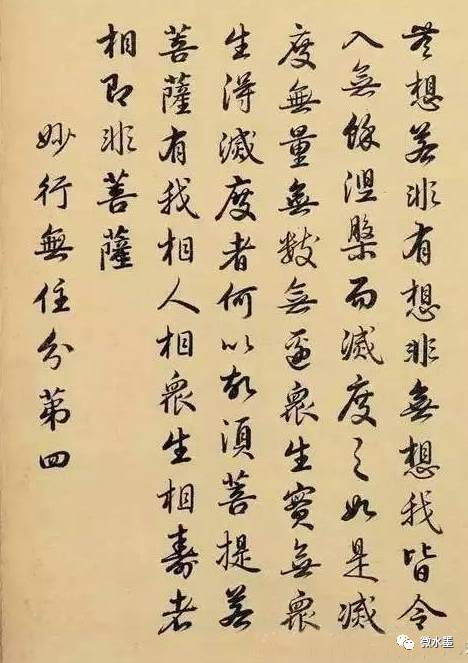 無想若非有想非無想我皆令
入無餘涅槃而滅度之如是滅
度無量無數無邊衆生實無衆
生得滅度者何以故須菩提若
菩薩有我相人相衆生相壽者
相即非菩薩
妙行無住分第四
微水墨